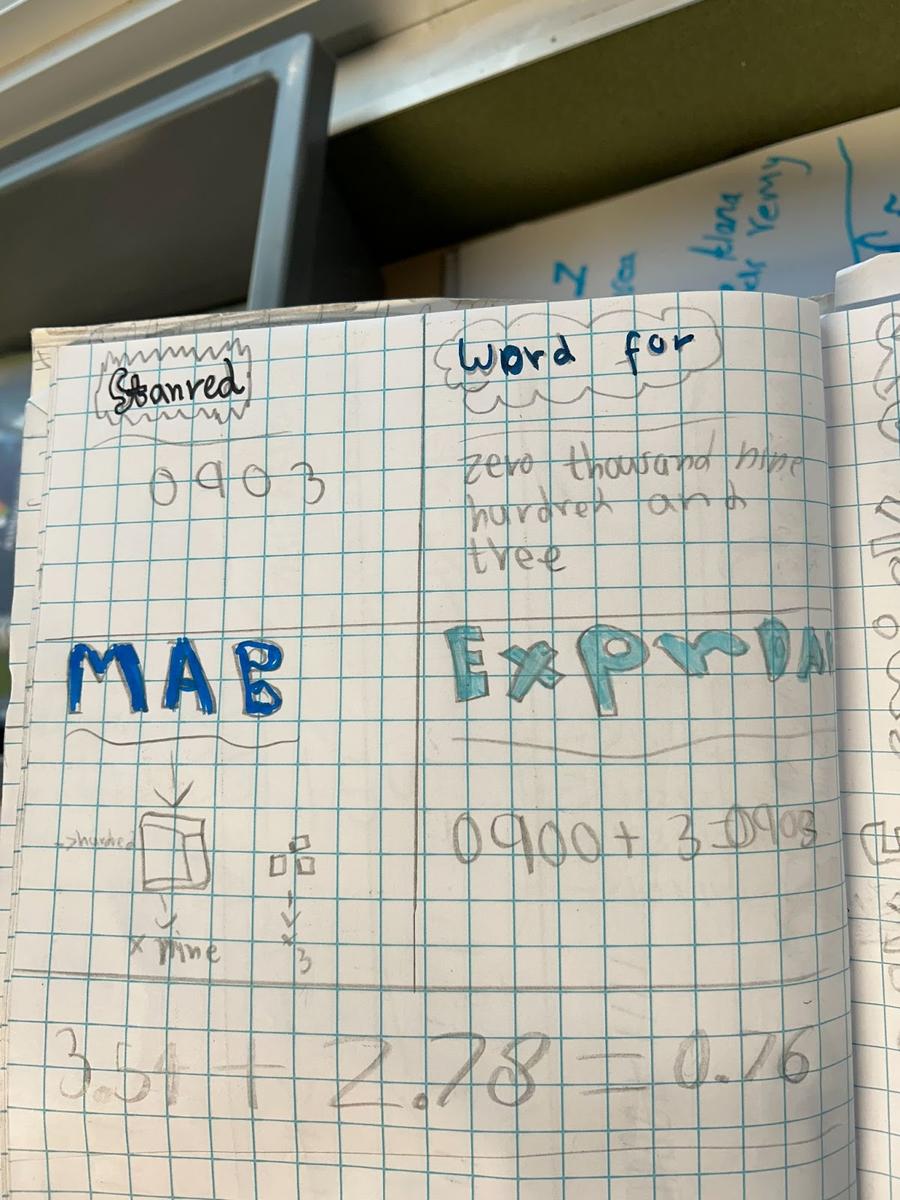 Alana
remy
Stanred
Word for
0903
zero thousand nine
hurdreh and
tree
MAB
0900 + 3 = 0903
x nine
x 3
3.54 + 2.78 = 0.76